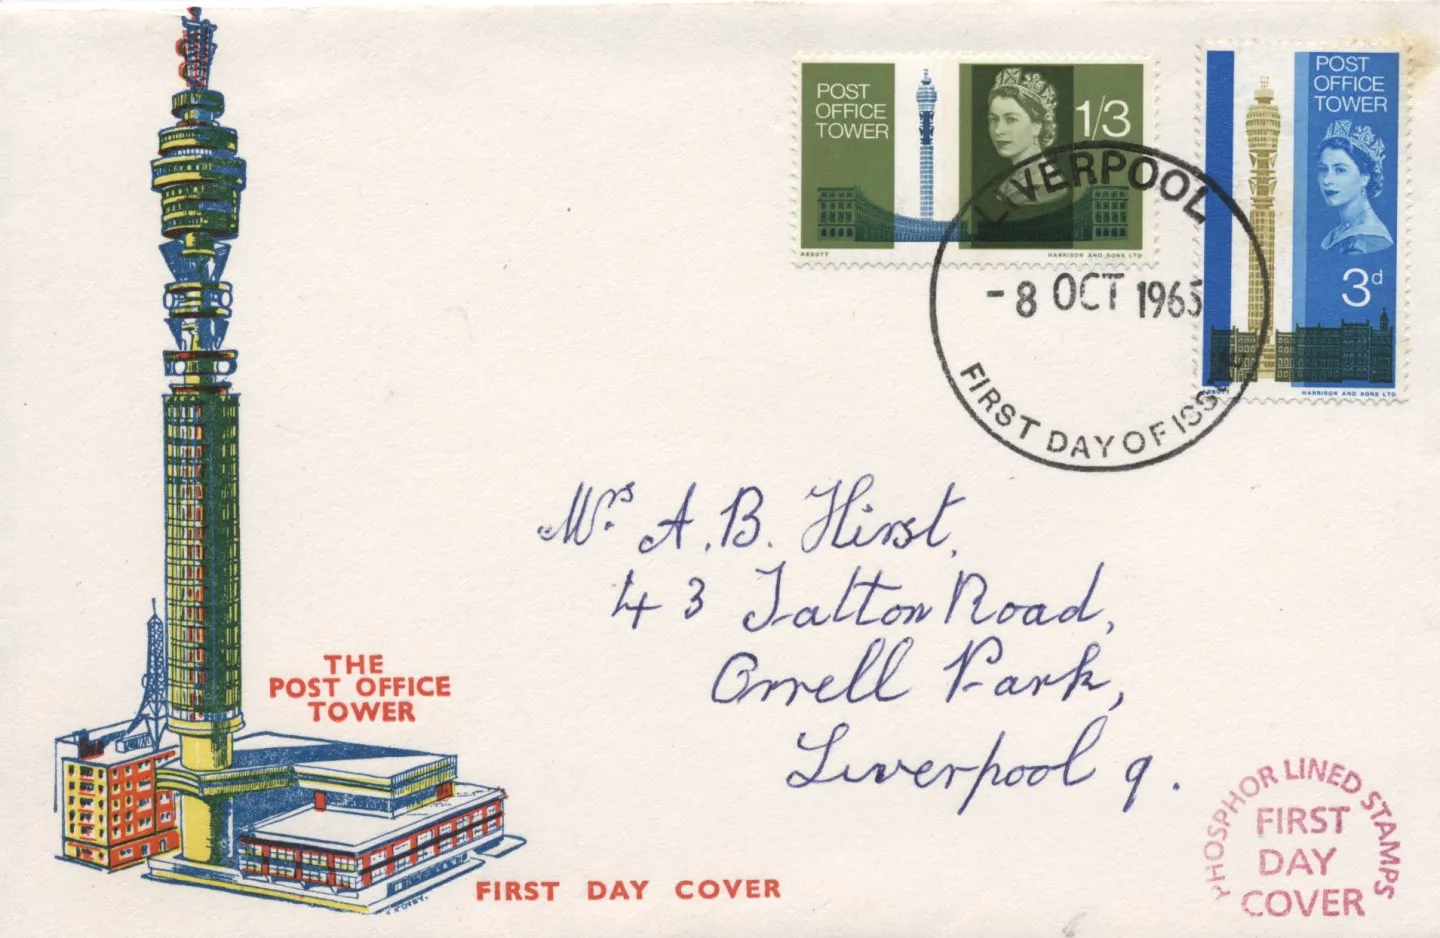 POST
OFFICE
TOWER
1/3
ABBOTT
HARRISON AND SONS LTD
POST
OFFICE
TOWER
3d
ABBOTT
HARRISON AND SONS LTD
LIVERPOOL
- 8 OCT 1965
FIRST DAY OF ISSUE
Mrs. A. B. Hirst,
43 Talton Road,
Orrell Park,
Liverpool 9.
THE
POST OFFICE
TOWER
FIRST DAY COVER
PHOSPHOR LINED STAMPS
FIRST
DAY
COVER